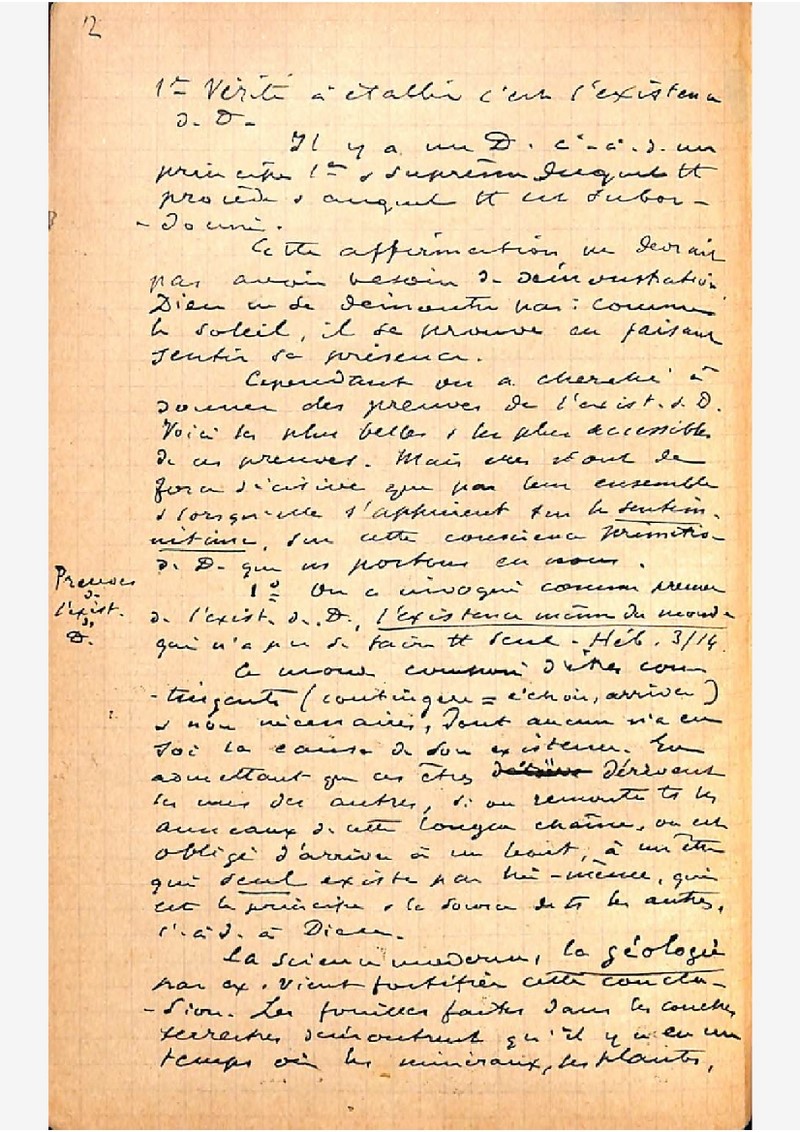 2
1re Vérité à établir c'est l'existence
d. D.
Il y a un D. c.-à-d. un
principe 1er & suprême duquel tt
procède & auquel tt est subor-
- donné.
Cette affirmation ne devrait
pas avoir besoin de démonstration.
Dieu ne se démontre pas : comme
le soleil, il se prouve en faisant
sentir sa présence.
Cependant on a cherché à
donner des preuves de l'exist. d. D.
Voici les plus belles & les plus accessibles
de ces preuves. Mais elles n'ont de
force décisive que par leur ensemble
& lorsqu'elle s'appuient sur le sentim.
intime, sur cette conscience primitive
de D. que ns portons en nous.
Preuves
d.
l'exist.
d.
D.
1o On a invoqué comme preuve
d. l'exist. d. D. l'existence même du monde
qui n'a pu se faire tt seul - Héb. 3/14.
Ce monde composé d'êtres con-
- tingents (contingere = échoir, arriver)
& non nécessaires, dont aucun n'a en
soi la cause de son existence. En
admettant que ces êtres dérivent
les uns des autres, si on remonte ts les
anneaux de cette longue chaîne, on est
obligé d'arriver à un bout, à un être
qui seul existe par lui-même, qui
est le principe & la source de ts les autres,
c.-à-d. à Dieu.
La science moderne, la géologie
par ex. vient fortifier cette conclu-
- sion. Les fouilles faites dans les couches
terrestres démontrent qu'il y a eu un
temps où les minéraux, les plantes,